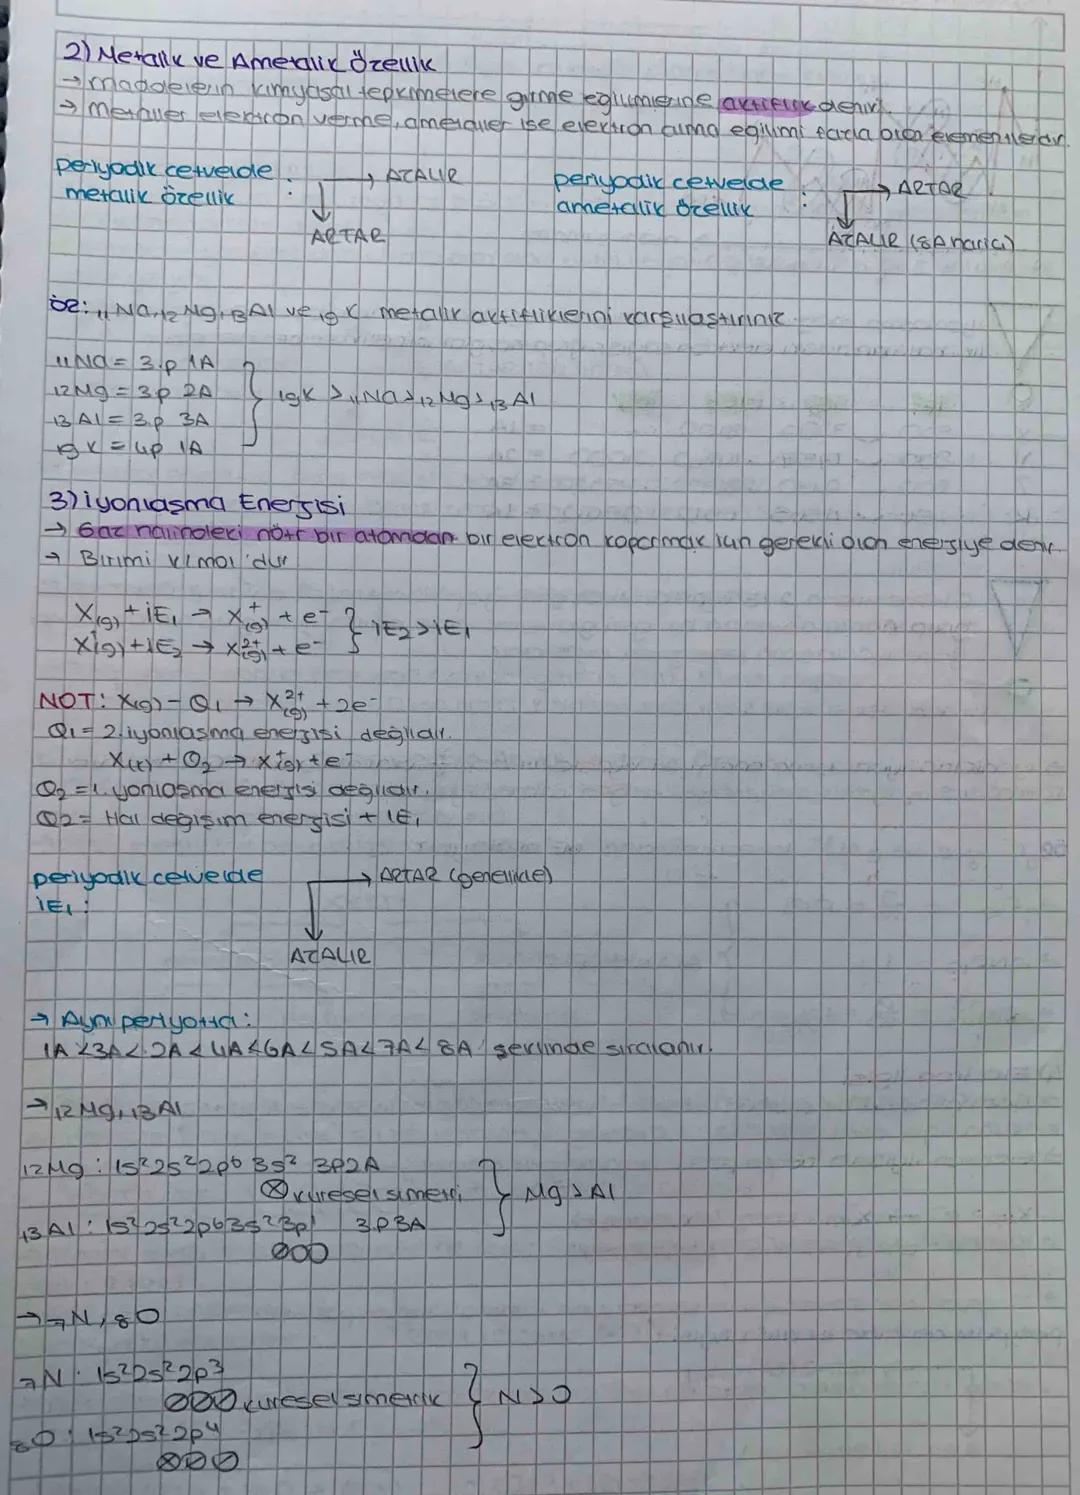 2) Metalik ve Ametalik Özellik
→ maddelerin kimyasal tepkimelere girme eğilimlerine aktiflik denir.
→ Metaller elektron verme, ametaller ise elektron alma eğilimi fazla olan elementlerdir.
periyodik cetvelde
metalik özellik :
→ AZALIR
↓
ARTAR
periyodik cetvelde
ametalik özellik :
→ ARTAR
↓
AZALIR (8A harici)
ÖR: ₁₁Na, ₁₂Mg, ₁₃Al ve ₁₉K metalik aktifliklerini karşılaştırınız
₁₁Na = 3.p 1A
₁₂Mg = 3p 2A
₁₃Al = 3.p 3A
₁₉K = 4p 1A
} ₁₉K > ₁₁Na > ₁₂Mg > ₁₃Al
3) iyonlaşma Enerjisi
→ Gaz halindeki nötr bir atomdan bir elektron koparmak için gerekli olan enerjiye denir.
→ Birimi k/mol 'dur
X(g) + iE₁ → X⁺(g) + e⁻
X⁺(g) + iE₂ → X²⁺(g) + e⁻
} iE₂ > iE₁
NOT: X(g) - Q₁ → X²⁺(g) + 2e⁻
Q₁ = 2.iyonlaşma enerjisi değildir.
X(k) + Q₂ → X⁺(g) + e⁻
Q₂ = 1. iyonlaşma enerjisi değildir.
Q2 = Hal değişim enerjisi + iE₁
periyodik cetvelde
iE₁ :
→ ARTAR (genellikle)
↓
AZALIR
→ Aynı periyotta:
1A < 3A < 2A < 4A < 6A < 5A < 7A < 8A şeklinde sıralanır.
→ ₁₂Mg, ₁₃Al
₁₂Mg : 1s² 2s² 2p⁶ 3s² 3p2A
⊗ küresel simetri
₁₃Al : 1s² 2s² 2p6 3s² 3p¹ 3.p 3A
⊘OO
} Mg > Al
→ ₇N, ₈O
₇N : 1s² 2s² 2p³
⊘⊘⊘ küresel simetrik
₈O : 1s² 2s² 2p⁴
⊗⊘⊘
} N > O